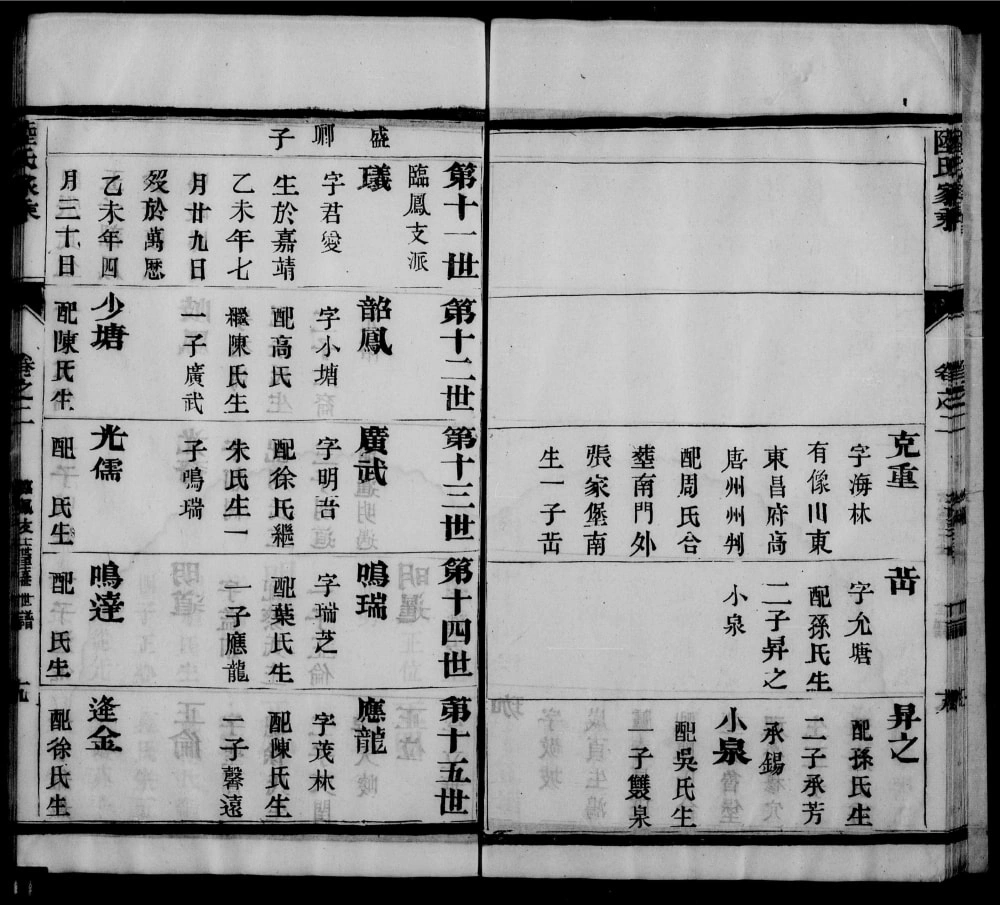 陸氏家乘
卷之二
克重
字海林
有像川東
東昌府高
唐州州判
配周氏合
塟南門外
張家堡南
生一子峀
峀
字允塘
配孫氏生
二子昇之
小泉
昇之
配孫氏生
二子承芳
承錫
小泉
配吳氏生
一子雙泉
盛卿子
第十一世
臨鳳支派
璣
字君變
生於嘉靖
乙未年七
月廿九日
歿於萬厯
乙未年四
月三十日
第十二世
韶鳳
字小塘
配高氏
繼陳氏生
一子廣武
少塘
配陳氏生
第十三世
廣武
字明吾
配徐氏繼
朱氏生一
子鳴瑞
光儒
配 氏生
第十四世
鳴瑞
字瑞芝
配葉氏生
一子應龍
鳴逹
配 氏生
第十五世
應龍
字茂林
配陳氏生
一子馨遠
逢金
配徐氏生
陸氏家乘
卷之二
世譜
九